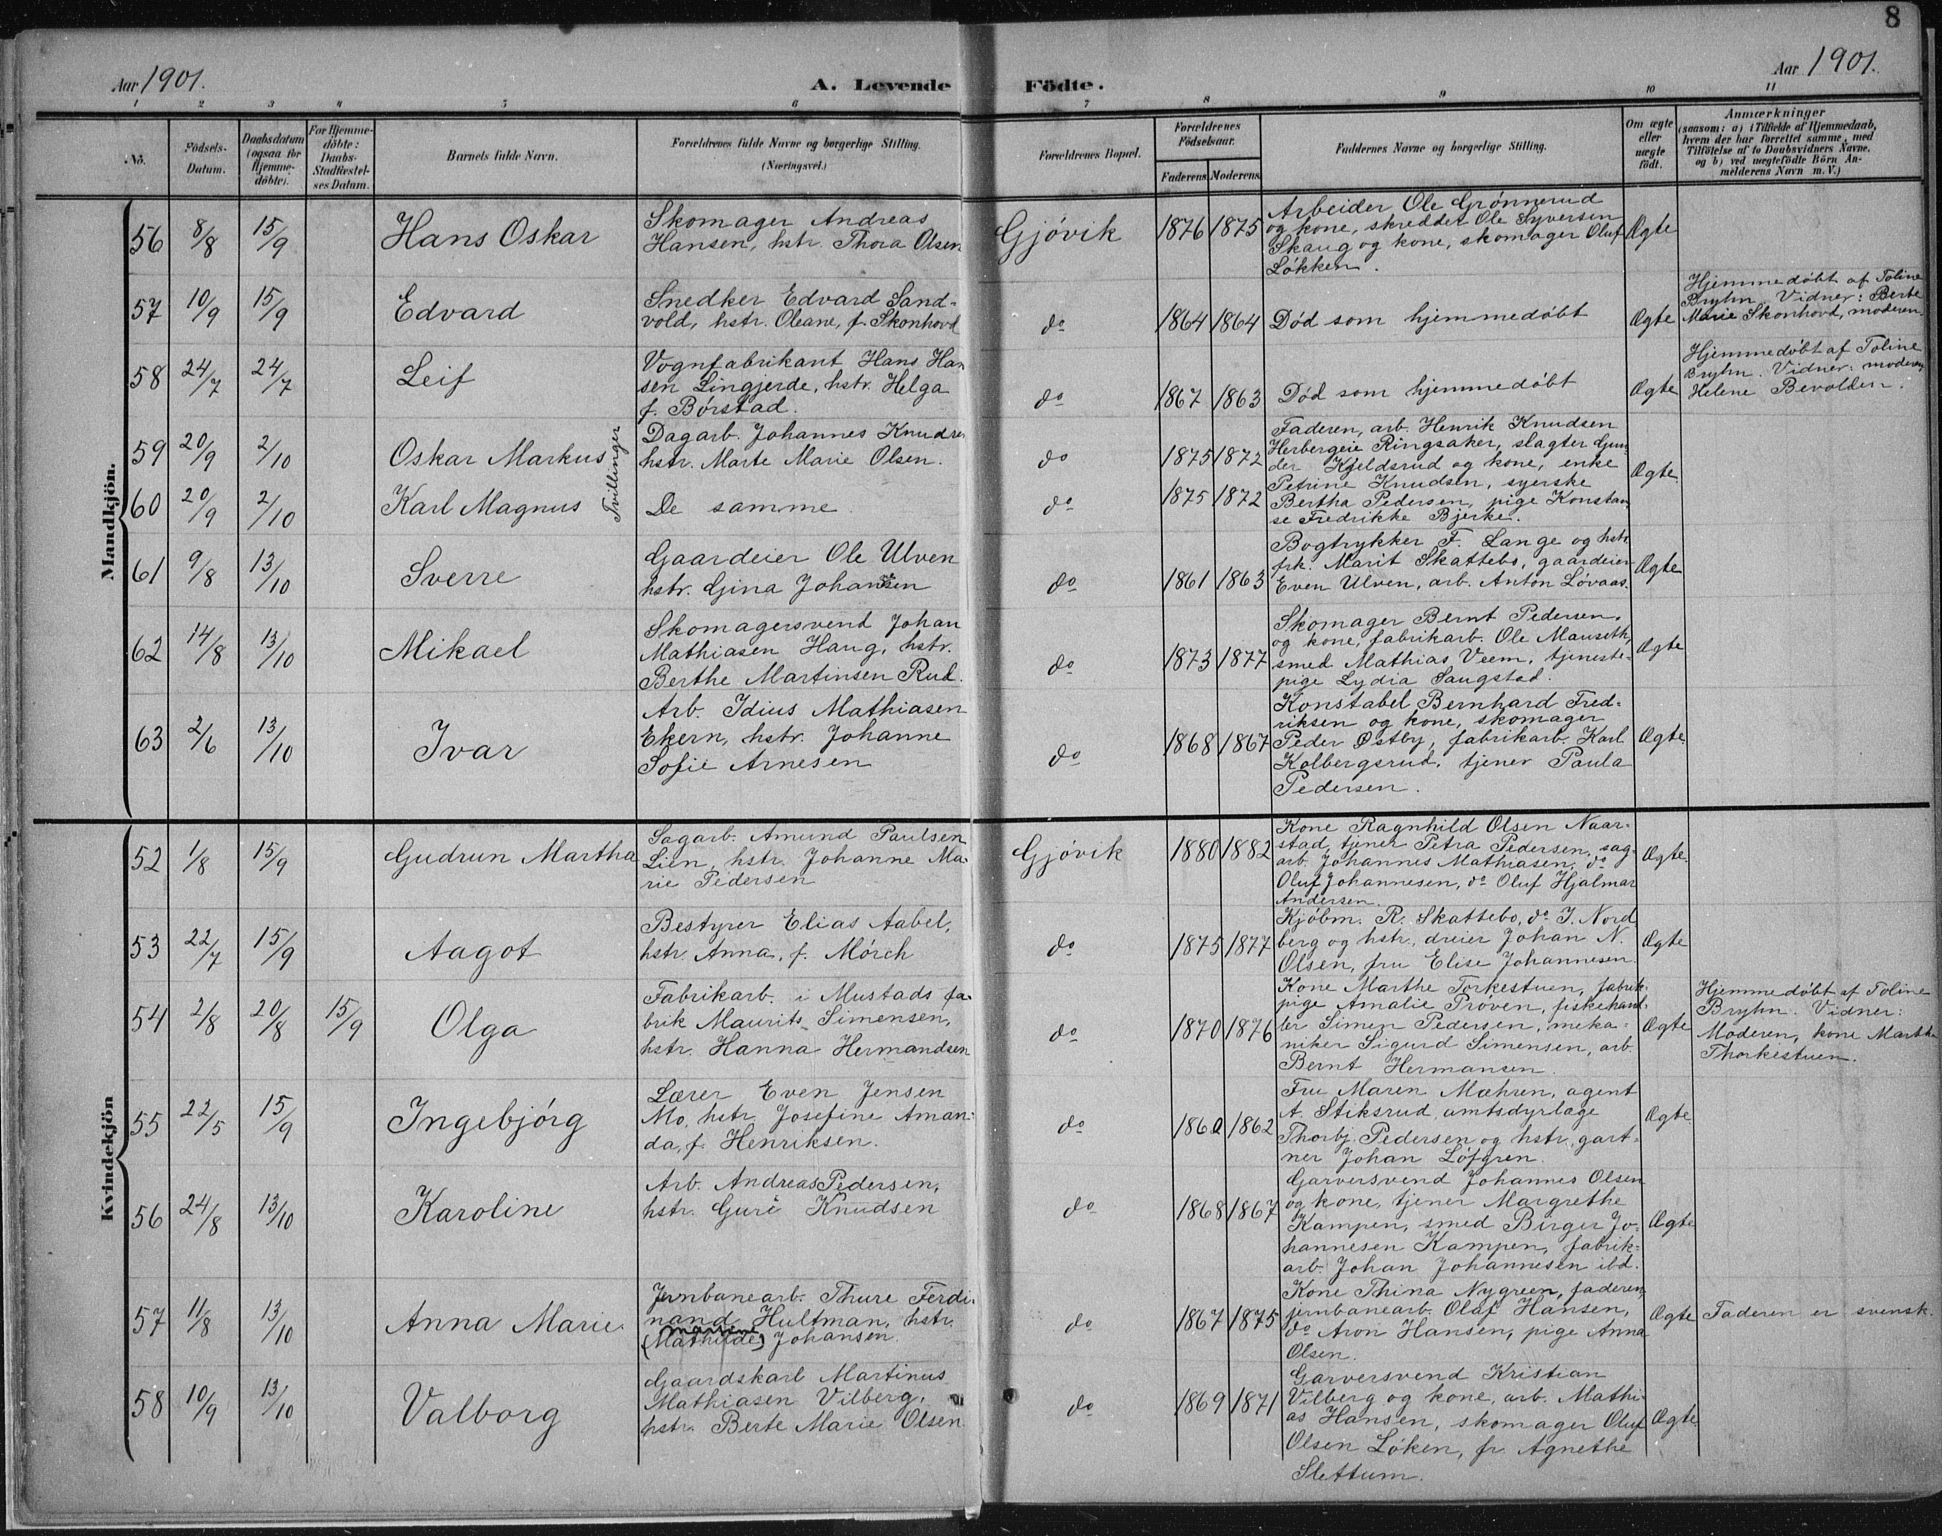 8
Aar 1901.
A. Levende Födte.
Aar 1901.
1 2 3 4 5 6 7 8 9 10 11
No.
Födsels-Datum.
Daabsdatum (ogsaa for Hjemme-döbte).
For Hjemme-döbte: Daabs-Stadfæstel-ses Datum.
Barnets fulde Navn.
Forældrenes fulde Navne og borgerlige Stilling.
(Næringsvei.)
Forældrenes Bopæl.
Forældrenes Födselsaar.
Faderens. Moderens.
Faddernes Navne og borgerlige Stilling.
Om ægte eller uægte födt.
Anmærkninger
(saasom: a) i Tilfælde af Hjemmedaab,
hvem der har forrettet samme, med
Tilföielse af to Daabsvidners Navne,
og b) ved uægtefödte Börn An-
melderens Navn m. V.)
Mandkjön.
56 8/8 15/9 Hans Oskar
Skomager Andreas
Hansen, hstr. Thora Olsen
Gjövik 1876 1875
Arbeider Ole Grönnerud
og kone, skredder Ole Syversen
Skaug og kone, skomager Oluf
Løkken.
Ægte
57 10/9 15/9 Edvard
Snedker Edvard Sand-
vold, hstr. Oleane, f. Skonhovd
do 1864 1864 Död som hjemmedöbt Ægte
Hjemmedöbt af Toline
Bryhn. Vidner: Berte
Marie Skonhovd, moderen.
58 24/7 24/7 Leif
Vognfabrikant Hans Han
sen Lingjerde, hstr. Helga
f. Børstad.
do 1867 1863 Död som hjemmedöbt Ægte
Hjemmedöbt af Toline
Bryhn. Vidner: moderen,
Helene Bevolden.
59 20/9 2/10 Oskar Markus
Tvillinger
Dagarb. Johannes Knudsen
hstr. Marte Marie Olsen.
do 1875 1872
60 20/9 2/10 Karl Magnus
De samme.
do 1875 1872
Faderen, arb. Henrik Knudsen
Herbergeie Ringsaker, slagter Gun-
der Kjeldsrud og kone, enke
Petrine Knudsen, syerske
Bertha Pedersen, pige Konstan-
se Fredrikke Bjerke.
Ægte
61 9/8 13/10 Sverre
Gaardeier Ole Ulven
hstr. Gina Johansen
do 1861 1863
Bogtrykker F. Lange og hstr.
frk. Marit Skattebo, gaardeier
Even Ulven, arb. Anton Lövaas.
Ægte
62 14/8 13/10 Mikael
Skomagersvend Johan
Mathiasen Haug, hstr.
Berthe Martinsen Rud.
do 1873 1877
Skomager Bernt Pedersen.
og kone, fabrikarb. Ole Mauseth,
smed Mathias Veem, tjeneste-
pige Lydia Saugstad.
Ægte
63 2/6 13/10 Ivar
Arb. Idius Mathiasen
Ekern, hstr. Johanne
Sofie Arnesen
do 1868 1867
Konstabel Bernhard Fred-
riksen og kone, skomager
Peder Østby, fabrikarb. Karl
Kolbergsrud, tjener Paula
Pedersen.
Ægte.
Kvindekjön
52 1/8 15/9 Gudrun Martha
Sagarb. Amund Paulsen
Lien, hstr. Johanne Ma-
rie Pedersen
Gjövik 1880 1882
Kone Ragnhild Olsen Naar-
stad, tjener Petra Pedersen, sag-
arb. Johannes Mathiasen, do
Oluf Johannesen, do Oluf Hjalmar
Andersen.
Ægte.
53 22/7 15/9 Aagot
Bestyrer Elias Aabel,
hstr. Anna, f. Mörch
do 1875 1877
Kjöbm. R. Skattebo, do J. Nord
berg og hstr., dreier Johan N.
Olsen, fru Elise Johannesen.
Ægte
54 2/8 20/8 15/9 Olga
Fabrikarb. i Mustads fa-
brik Maurits Simensen,
hstr. Hanna Hermandsen
do 1870 1876
Kone Marthe Torkestuen, fabrik-
pige Amalie Pröven, fiskehand
ler Simen Pedersen, meka-
niker Sigurd Simensen, arb.
Bernt Hermansen.
Ægte
Hjemmedöbt af Toline
Bryhn. Vidner:
Moderen, kone Marthe
Thorkestuen.
55 22/5 15/9 Ingebjörg
Lærer Even Jensen
Mo, hstr. Josefine Aman-
da, f. Henriksen.
do 1860 1862
Fru Maren Mæhren, agent
A. Stiksrud, amtsdyrlæge
Thorbj. Pedersen og hstr., gart-
ner Johan Löfgren.
Ægte
56 24/8 13/10 Karoline
Arb. Andreas Pedersen,
hstr. Guri Knudsen
do 1868 1867
Garversvend Johannes Olsen
og kone, tjener Margrethe
Kampen, smed Birger Jo-
hannesen Kampen, fabrik-
arb. Johan Johannesen ibd.
Ægte
57 11/8 13/10 Anna Marie.
Jernbanearb. Thure Ferdi-
nand Hultman, hstr.
(Mathilde) Johansen.
do 1867 1875
Kone Thina Nygreen, faderen,
jernbanearb. Olaf Hansen,
do Aron Hansen, pige Anna
Olsen.
Ægte Faderen er svensk.
58 10/9 13/10 Valborg
Gaardskarl Martinus
Mathiasen Vilberg,
hstr. Berte Marie Olsen
do 1869 1871
Garversvend Kristian
Vilberg og kone, arb. Mathi-
as Hansen, skomager Oluf
Olsen Löken, fr. Agnethe
Slettum.
Ægte.